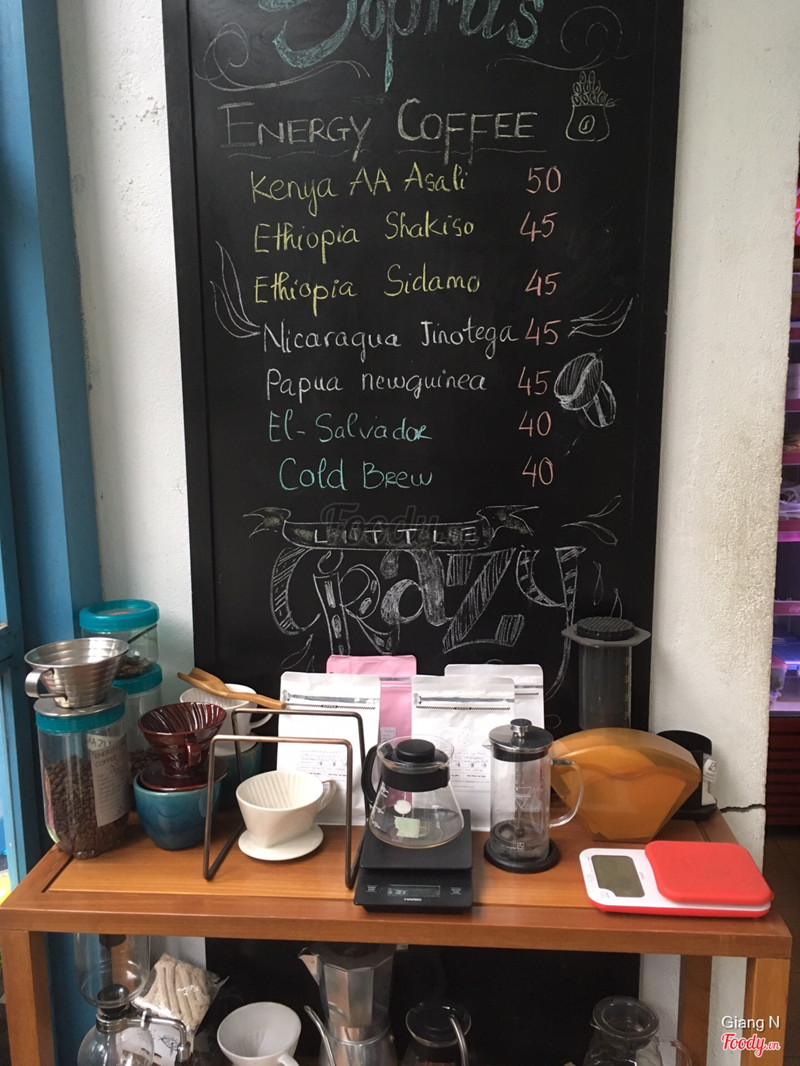 Soprus
ENERGY COFFEE
Kenya AA Asali 50
Ethiopia Shakiso 45
Ethiopia Sidamo 45
Nicaragua Jinotega 45
Papua newguinea 45
El-Salvador 40
Cold Brew 40
Foody
LITTLE
CRaZy
HARIO
Giang N
Foody.vn